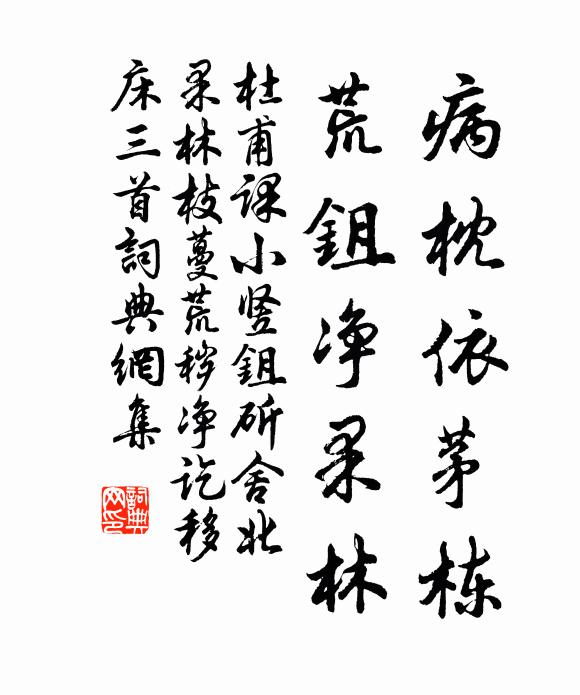 病枕依茅栋
荒鉏净果林
杜甫课小竖鉏斫舍北
果林枝蔓荒秽净讫移
床三首詞典網集
詞典网印